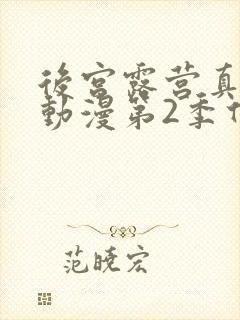 後宮露营真
動漫第2季
范曉宏